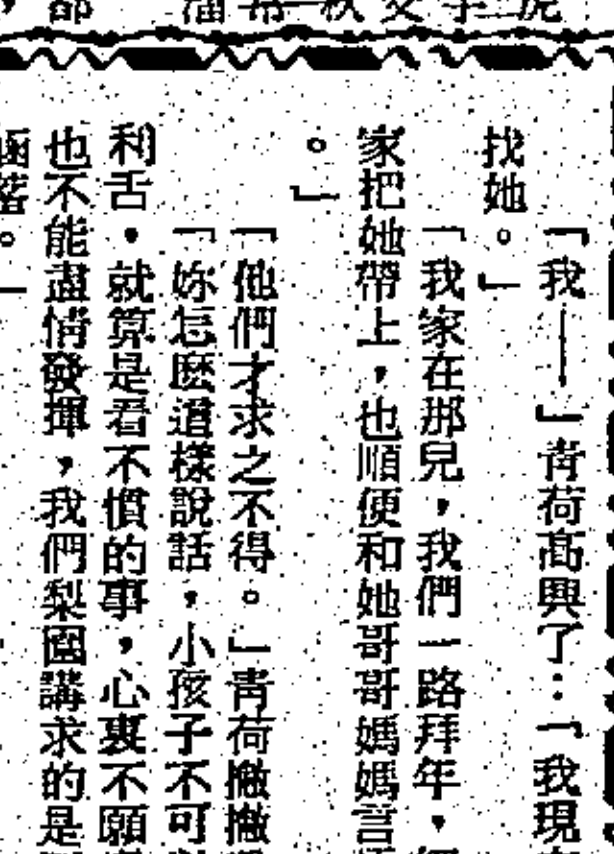 找她。」
「我——」青荷高興了：「我現
「我家在那兒，我們一路拜年，
家把她帶上，也順便和她哥哥媽媽言
。」
「他們才求之不得。」青荷撇撇
「妳怎麽這樣說話，小孩子不可
利舌，就算是看不慣的事，心裏不願
也不能盡情發揮，我們梨園講求的是
涵蓄。」